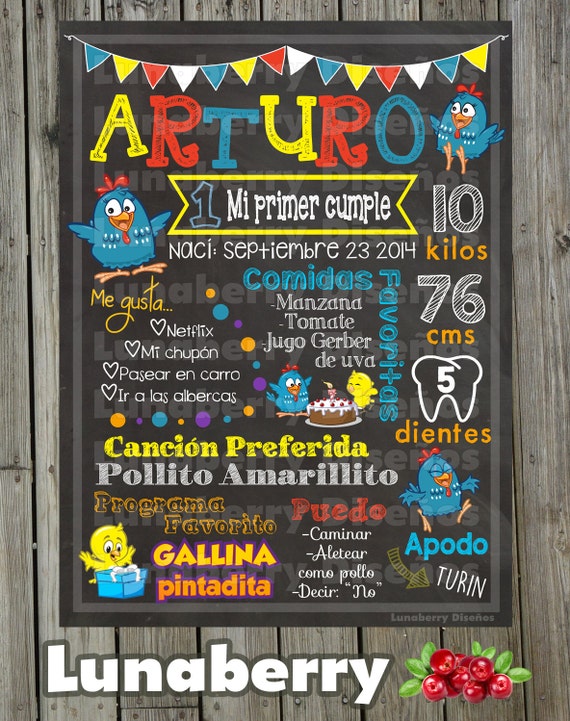 ARTURO
1 Mi primer cumple
Nací: Septiembre 23 2014
10
kilos
76
cms
5
dientes
Me gusta...
♡Netflix
♡Mi chupón
♡Pasear en carro
♡Ir a las albercas
Comidas
Favoritas
-Manzana
-Tomate
-Jugo Gerber
de uva
Canción Preferida
Pollito Amarillito
Programa
Favorito
GALLINA
pintadita
Puedo
-Caminar
-Aletear
como pollo
-Decir: "No"
Apodo
TURIN
Lunaberry Diseños
Lunaberry